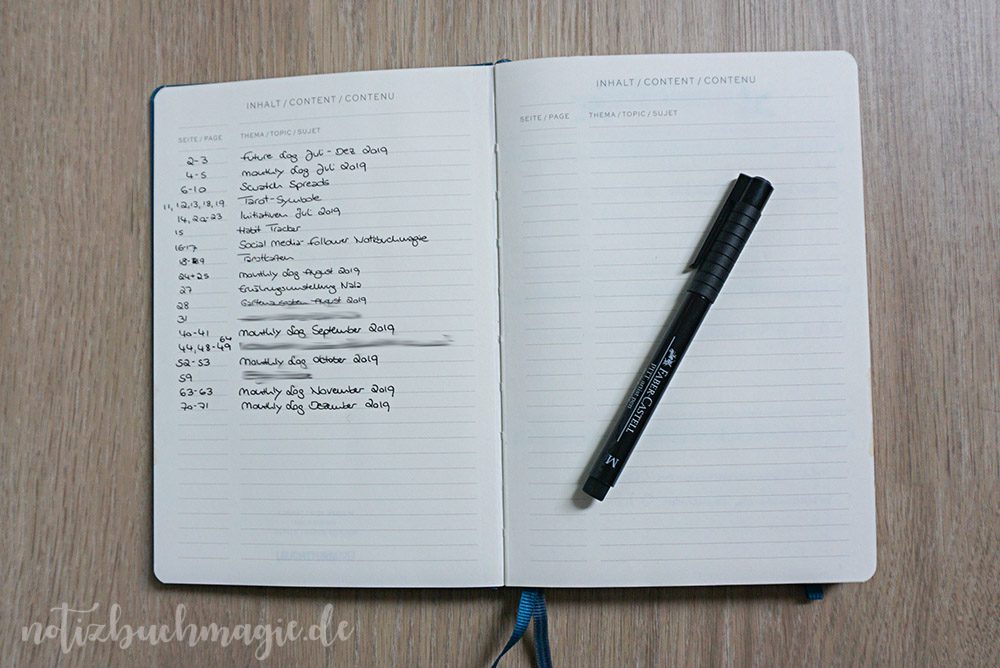 INHALT / CONTENT / CONTENU
SEITE / PAGE THEMA / TOPIC / SUJET
2-3 Future Log Juli - Dez 2019
4-5 Monthly Log Juli 2019
6-10 Scratch Spreads
11, 12, 13, 18, 19 Tarot-Symbole
14, 20-23 Initiativen Juli 2019
15 Habit Tracker
16-17 Social media-Follower Notizbuchmagie
18-19 Tarotkarten
24+25 Monthly Log August 2019
27 Ernährungsumstellung Nala
28 August 2019
31
40-41 Monthly Log September 2019
44, 48-49 64
52-53 Monthly Log Oktober 2019
59
63-63 Monthly Log November 2019
70-71 Monthly Log Dezember 2019
INHALT / CONTENT / CONTENU
SEITE / PAGE THEMA / TOPIC / SUJET
FABER CASTELL
PITT artist pen
M
notizbuchmagie.de